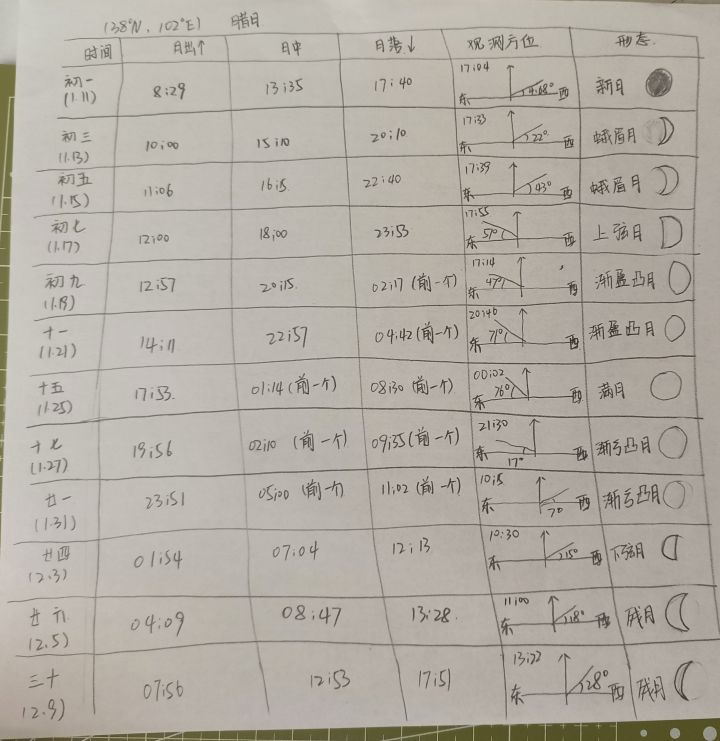 (38°N, 102°E) 腊月
时间 月出↑ 月中 月落↓ 观测方位 形态
初一 (1.11) 8:29 13:35 17:40 17:04 东 4.68° 西 新月
初三 (1.13) 10:00 15:10 20:10 17:33 东 22° 西 蛾眉月
初五 (1.15) 11:06 16:15 22:40 17:39 东 43° 西 蛾眉月
初七 (1.17) 12:00 18:00 23:53 17:55 东 57° 西 上弦月
初九 (1.19) 12:57 20:15 02:17 (前一个) 17:14 东 47° 西 渐盈凸月
十一 (1.21) 14:11 22:57 04:42 (前一个) 20:46 东 71° 西 渐盈凸月
十五 (1.25) 17:53 01:14 (前一个) 08:30 (前一个) 00:02 东 76° 西 满月
十七 (1.27) 19:56 02:10 (前一个) 09:35 (前一个) 21:30 东 17° 西 渐亏凸月
廿一 (1.31) 23:51 05:00 (前一个) 11:02 (前一个) 10:15 东 7° 西 渐亏凸月
廿四 (2.3) 01:54 07:04 12:13 10:30 东 15° 西 下弦月
廿六 (2.5) 04:09 08:47 13:28 11:00 东 18° 西 残月
三十 (2.9) 07:56 12:53 17:51 13:22 东 28° 西 残月